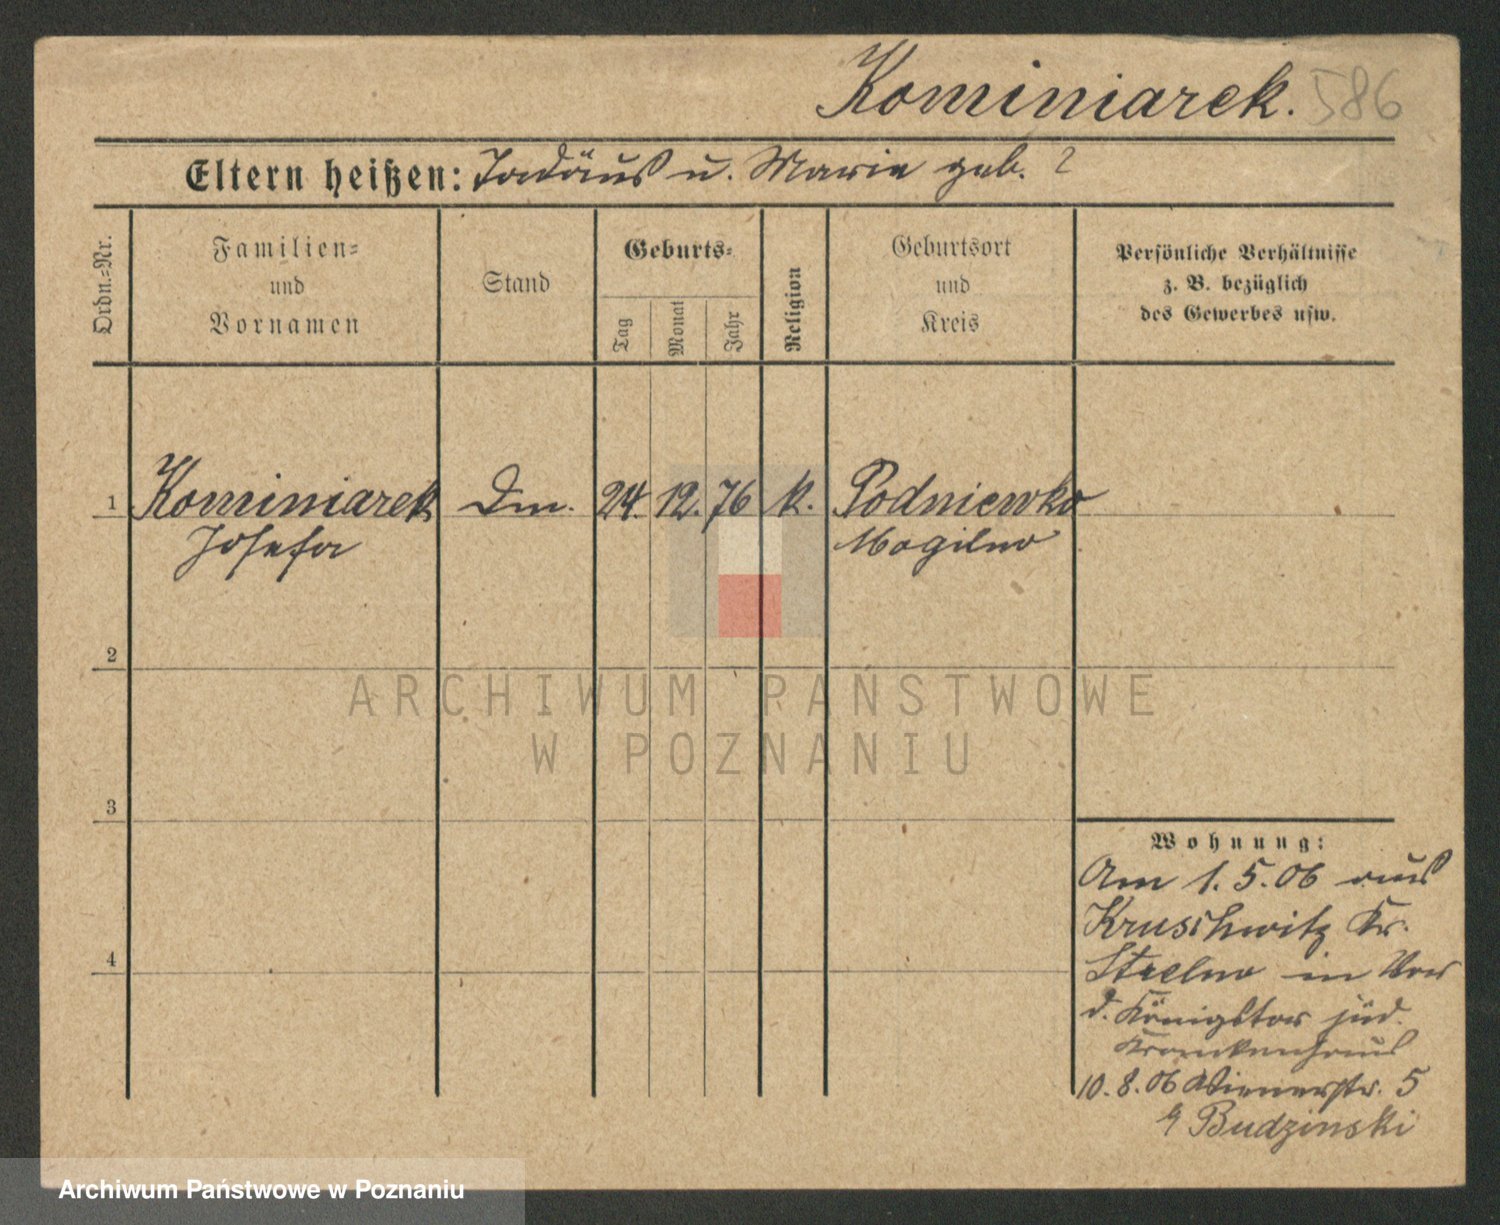 Kominiarek. 586
Eltern heißen: Tadäus u. Maria geb. ?
Ordn.=Nr.
Familien=
und
Vornamen
Stand
Geburts=
Tag
Monat
Jahr
Religion
Geburtsort
und
Kreis
Persönliche Verhältnisse
z. B. bezüglich
des Gewerbes usw.
1 Kominiarek Dm. 24. 12. 76 k. Podniewko
Josefa Mogilno
2
ARCHIWUM PAŃSTWOWE
W POZNANIU
3
Wohnung:
Am 1. 5. 06 aus
Kruschwitz Kr.
4
Strelno in Vor
d. Königstor jüd.
Krankenhaus
10. 8. 06 Wienerstr. 5
Budzinski
Archiwum Państwowe w Poznaniu